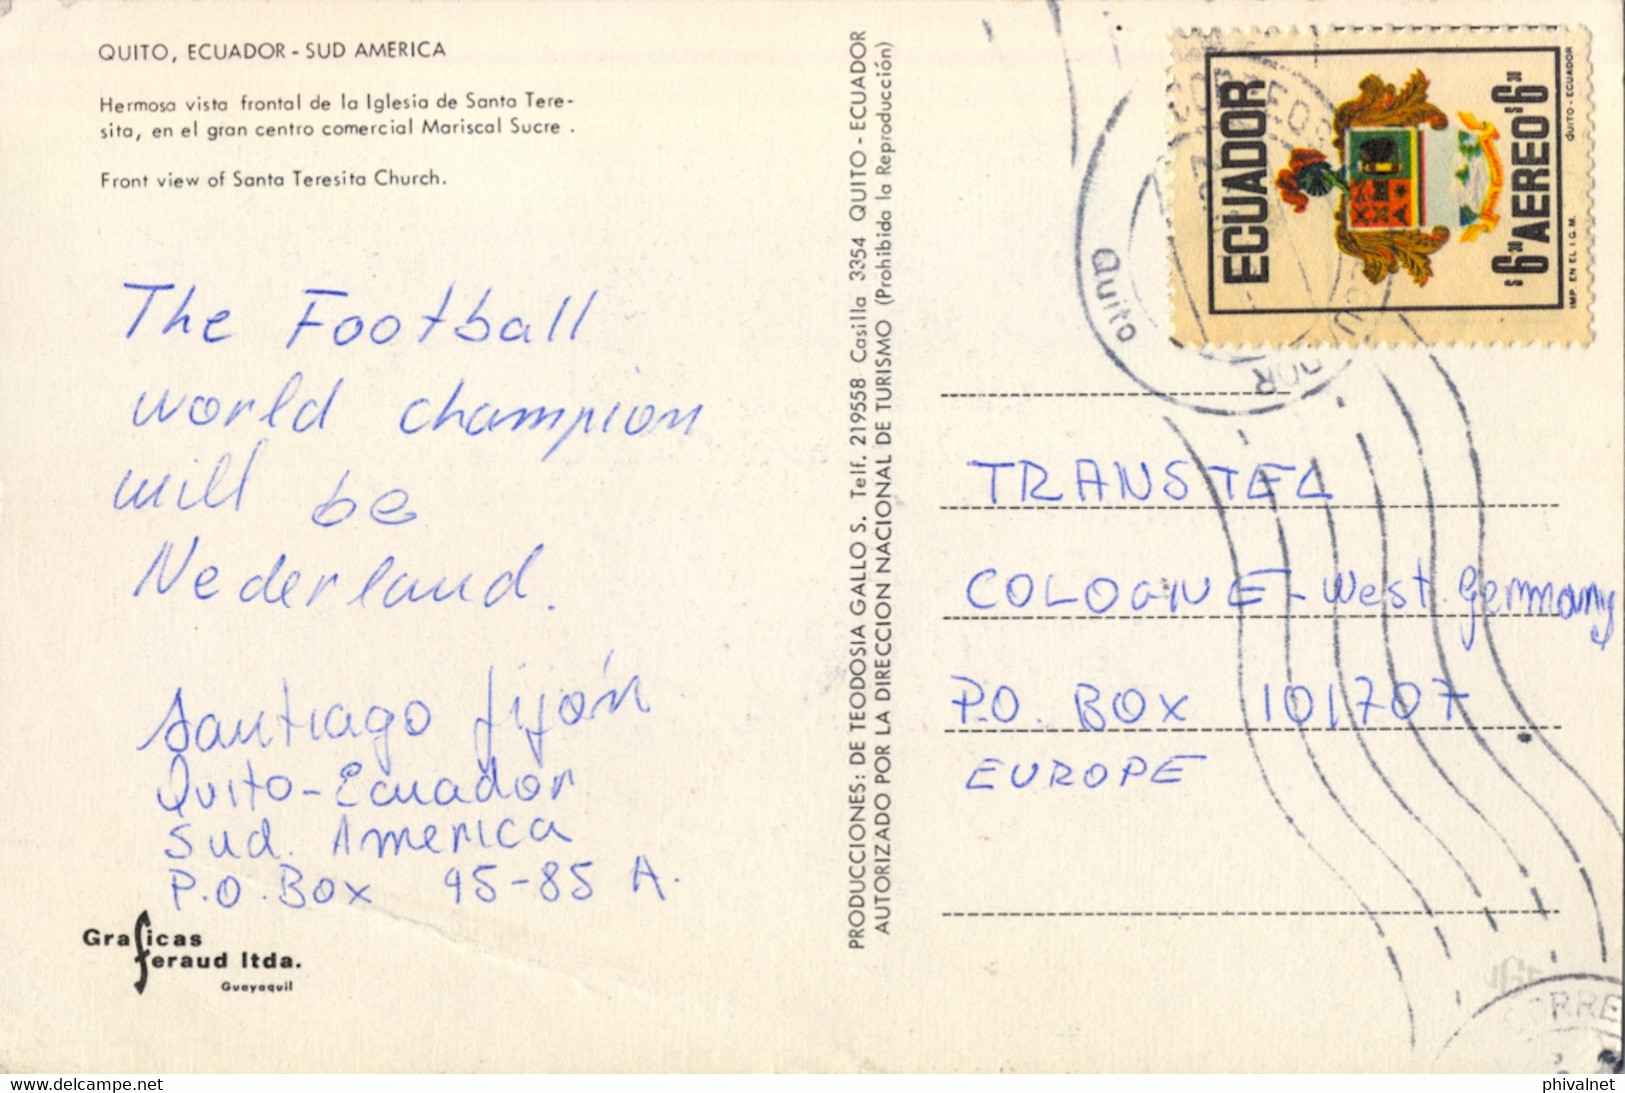 QUITO, ECUADOR - SUD AMERICA
Hermosa vista frontal de la Iglesia de Santa Tere-
sita, en el gran centro comercial Mariscal Sucre .
Front view of Santa Teresita Church.
The Football
world champion
will be
Nederland.
Santiago Jijón
Quito - Ecuador
Sud. America
P.O. Box 95-85 A.
Graficas
feraud ltda.
Guayaquil
PRODUCCIONES: DE TEODOSIA GALLO S. Telf. 219558 Casilla 3354 QUITO - ECUADOR
AUTORIZADO POR LA DIRECCION NACIONAL DE TURISMO (Prohibida la Reproducción)
ECUADOR
AEREO
IMP. EN EL I.G.M. QUITO - ECUADOR
CORREOS
Quito
TRANSTEL
COLOGNE - West. Germany
P.O. BOX 101707
EUROPE
CORRE
Ray ID: 749b1c74184091ed
phivalnet